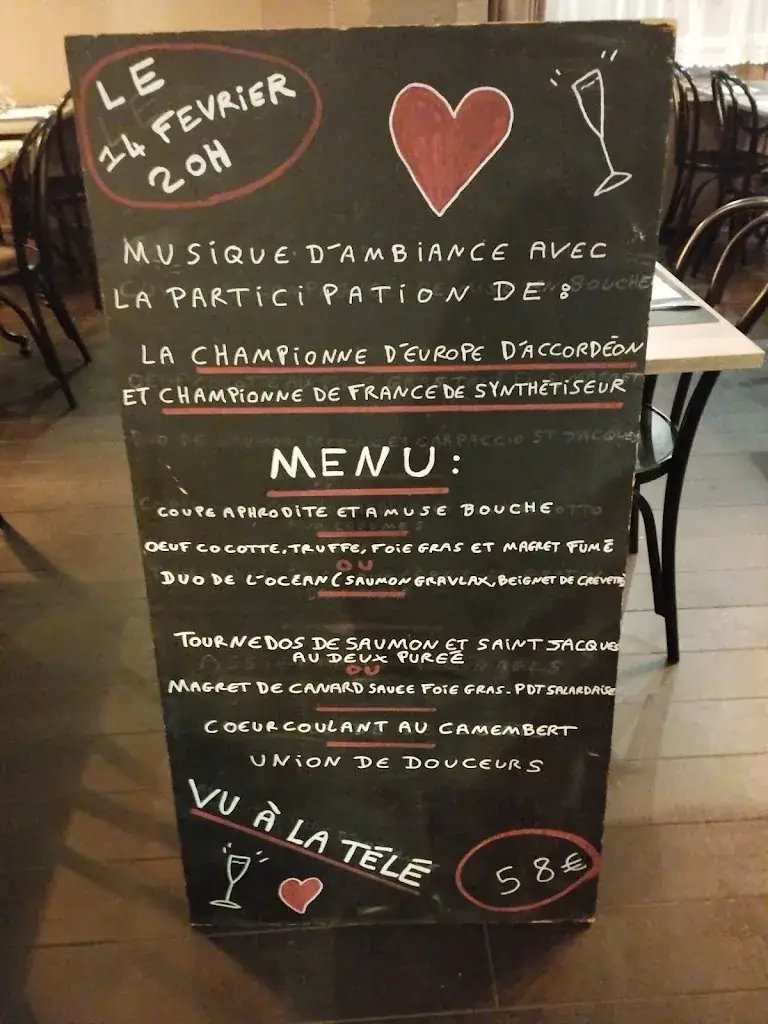 LE
14 FEVRIER
20H
MUSIQUE D'AMBIANCE AVEC
LA PARTICIPATION DE :
LA CHAMPIONNE D'EUROPE D'ACCORDÉON
ET CHAMPIONNE DE FRANCE DE SYNTHÉTISEUR
MENU :
COUPE APHRODITE ET AMUSE BOUCHE
OEUF COCOTTE, TRUFFE, FOIE GRAS ET MAGRET FUMÉ
OU
DUO DE L'OCEAN (SAUMON GRAVLAX, BEIGNET DE CREVETTE)
TOURNEDOS DE SAUMON ET SAINT JACQUES
AU DEUX PURÉE
OU
MAGRET DE CANARD SAUCE FOIE GRAS - PDT SALARDAISE
COEUR COULANT AU CAMEMBERT
UNION DE DOUCEURS
VU À LA TÉLÉ
58€